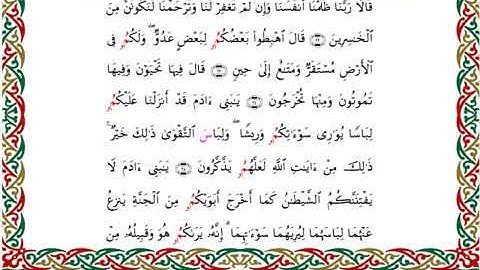 قَالَا رَبَّنَا ظَلَمْنَا أَنفُسَنَا وَإِن لَّمْ تَغْفِرْ لَنَا وَتَرْحَمْنَا لَنَكُونَنَّ مِنَ
ٱلْخَٰسِرِينَ ۝٢٣ قَالَ ٱهْبِطُوا۟ بَعْضُكُمْ لِبَعْضٍ عَدُوٌّ ۖ وَلَكُمْ فِى
ٱلْأَرْضِ مُسْتَقَرٌّ وَمَتَٰعٌ إِلَىٰ حِينٍ ۝٢٤ قَالَ فِيهَا تَحْيَوْنَ وَفِيهَا
تَمُوتُونَ وَمِنْهَا تُخْرَجُونَ ۝٢٥ يَٰبَنِىٓ ءَادَمَ قَدْ أَنزَلْنَا عَلَيْكُمْ
لِبَاسًا يُوَٰرِى سَوْءَٰتِكُمْ وَرِيشًا ۖ وَلِبَاسَ ٱلتَّقْوَىٰ ذَٰلِكَ خَيْرٌ ۚ
ذَٰلِكَ مِنْ ءَايَٰتِ ٱللَّهِ لَعَلَّهُمْ يَذَّكَّرُونَ ۝٢٦ يَٰبَنِىٓ ءَادَمَ لَا
يَفْتِنَنَّكُمُ ٱلشَّيْطَٰنُ كَمَآ أَخْرَجَ أَبَوَيْكُم مِّنَ ٱلْجَنَّةِ يَنزِعُ
عَنْهُمَا لِبَاسَهُمَا لِيُرِيَهُمَا سَوْءَٰتِهِمَآ ۗ إِنَّهُۥ يَرَىٰكُمْ هُوَ وَقَبِيلُهُۥ مِنْ